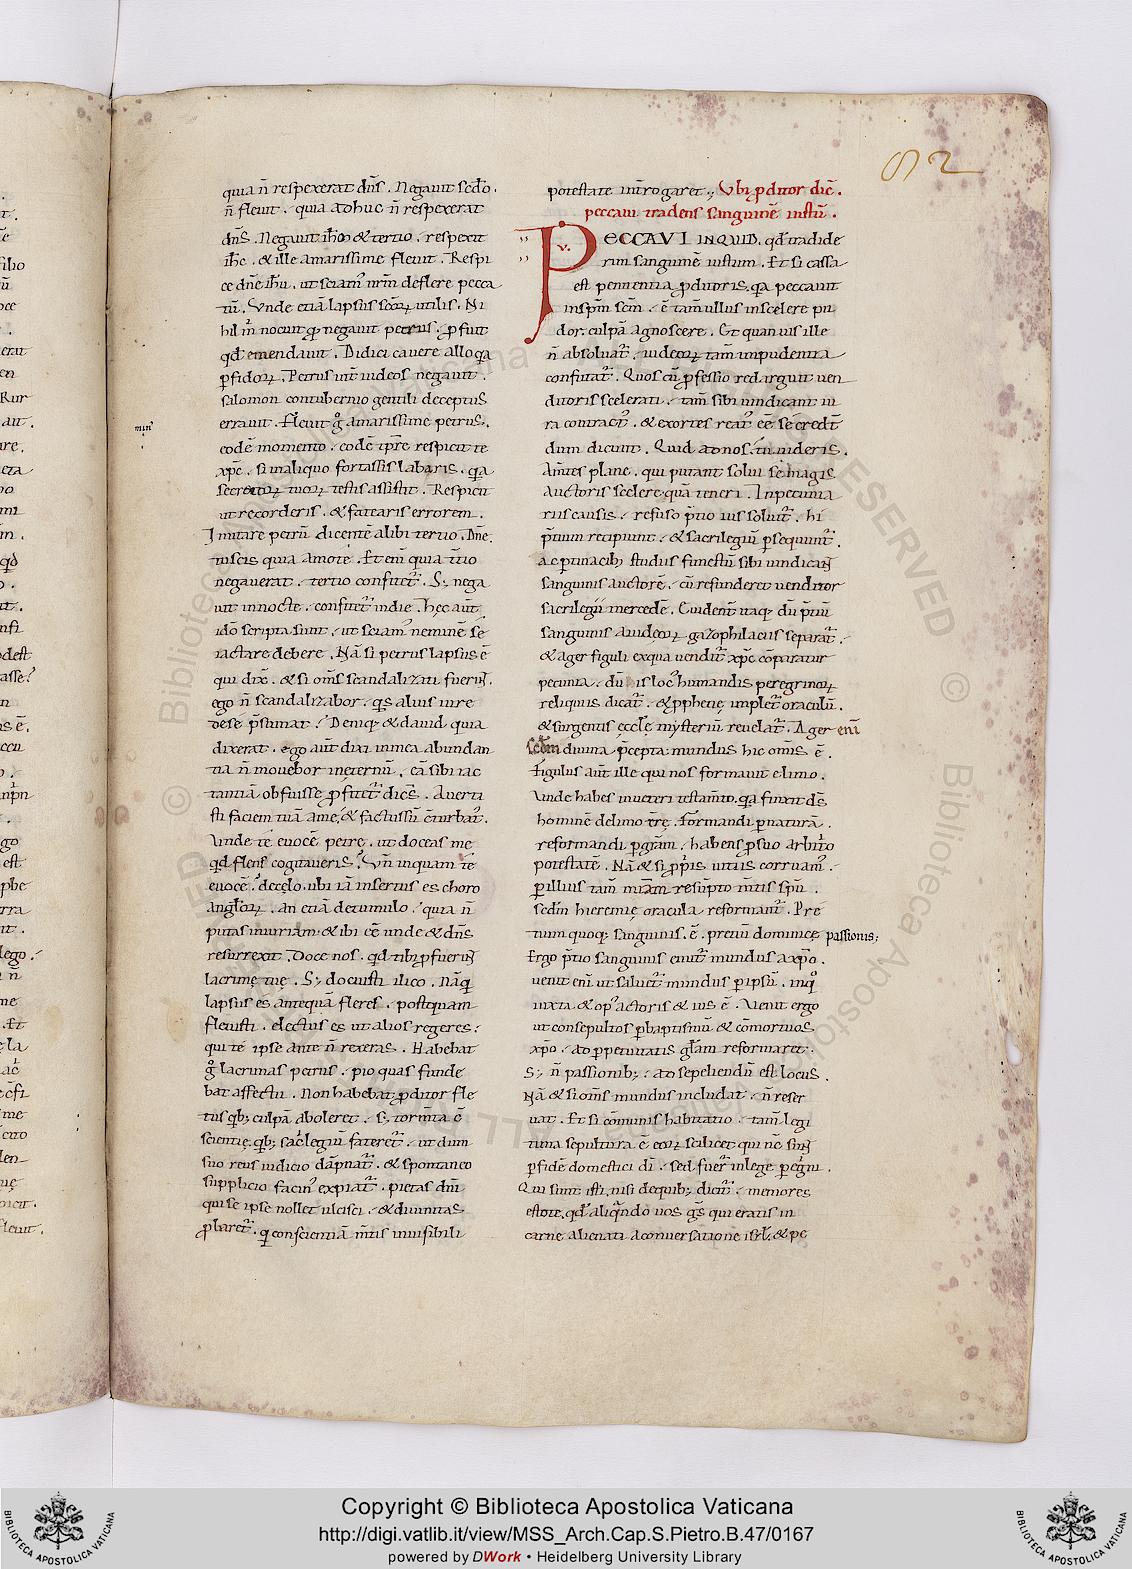 82
quia n̄ respexerat dn̄s. Negavit secdo.
n̄ flevit. quia adhuc n̄ respexerat
dn̄s. Negavit ih̄s & tertio. respexit
ih̄s. & ille amarissime flevit. Respi
ce dn̄e ih̄u. ut sciam' nr̄m deflere pecca
tū. Unde etiā lapsus scōꝝ utilis. Ni
hil m̄ nocuit qd negavit petrus. ꝓfuit
qd emendavit. Didici cavere alloqa
ꝑfidoꝝ. Petrus int̄ iudeos negavit.
salomon contubernio gentili deceptus
erravit. Flevit g° amarissime petrus.
eodē momento. eodē tp̄re respicit te
xp̄c. si in aliquo fortassis labaris. qa
secretoꝝ tuoꝝ testis assistit. Respicit
ut recorderis. & fatearis errorem.
Imitare petrū dicentē alibi tertio. Dn̄e
tu scis quia amo te. Et eni quia t̄tio
negaverat. tertio confitet᷑. S; nega
vit in nocte. confitet᷑ in die. Hęc aut̄
ido scripta sunt. ut sciam' neminē se
iactare debere. Nā si petrus lapsus ē
qui dix̄. & si om̄s scandalizati fuerint.
ego n̄ scandalizabor. qs alius iure
de se p̄sumat? Deniq; & david quia
dixerat. ego aut̄ dixi in mea abundan
tia n̄ movebor in eternū. eā sibi iac
tantiā obfuisse ꝓfitet᷑ dicēs. Averti
sti faciem tuā a me. & factus sū c̄turbat'.
Unde te evocē petre. ut doceas me
qd flens cogitaveris? Un̄ inquam te
evocē? de cęlo. ubi iā insertus es choro
angloꝝ. an etiā de tumulo? quia n̄
putas iniuriam & ibi eē unde & dn̄s
resurrexit. Doce nos. qd tibi ꝓfuerint
lacrimę tuę. S; docuisti ilico. Nāq;
lapsus es antequā fleres. postquam
flevisti. electus es ut alios regeres.
qui te ipse ante n̄ rexeras. Habebat
g° lacrimas petrus. pio quas funde
bat affectu. Non habebat ꝓditor fle
tus qb; culpā aboleret. s; torm̄ta c̄
scientię. qb; sac̄legiū fateret᷑. ut dum
suo reus iudicio dāpnat᷑. & spontaneo
supplicio facin' expiat᷑. pietas dn̄i
qui se ipse nollet ulcisci. & divinitas
ꝓbaret᷑. q conscientiā m̄tis invisibili
min'
potestate intrrogaret. Ubi ꝓditor dic̄.
peccavi tradens sanguinē iustū.
v.
PECCAVI INQUID. qd tradide
rim sanguinē iustum. Et si cassa
est penitentia ꝓditoris. qa peccavit
in sp̄m scm̄. ē tam̄ ullus in scelere pu
dor. culpā agnoscere. Et quanvis ille
n̄ absolvat᷑. iudeoꝝ tam̄ inpudentia
confutat᷑. Quos cū ꝓfessio redarguit ven
ditoris scelerati. tam̄ sibi vindicant iu
ra contract'. & exortes reat' eē se credt̄
dum dicunt. Quid ad nos. tu videris.
Am̄tes plane. qui putant solvi se magis
auctoris scelere quā teneri. In pecunia
riis causis. refuso p̄tio ius solvit᷑. hi
p̄tium recipiunt. & sacrilegiū ꝑsequunt᷑.
ac ꝑtinacib; studiis funestū sibi vindicant
sanguinis auctorē. cū refunderet venditor
sacrilegii mercedē. Evident̄ itaq; dū p̄tiū
sanguinis a iudeoꝝ gazophilaciis separat᷑.
& ager figuli ex qua vendit' xp̄c cōparatur
pecunia. dū is loc' humandis peregrinoꝝ
reliquiis dicat᷑. & ꝓphetię implet᷑ oraculū.
& surgentis ecclę mysteriū revelat᷑. Ager eni
scdm divina p̄cepta: mundus hic omnis ē.
Figulus aut̄ ille qui nos formavit e limo.
Unde habes in veteri testam̄to. qa finxit ds̄
hominē de limo t̄rę. Formandi ꝑ naturā.
reformandi ꝑ grām. habens ꝑ suo arbitrio
potestatē. Nā & si ꝓp̄is vitiis corruam'.
ꝑ illius tam̄ mīam resūpto m̄tis spū.
secdm hieremię oracula reformam'. Pre
tium quoq; sanguinis. ē. pretiū dominicę passionis;
Ergo p̄tio sanguinis emit᷑ mundus a xp̄o.
venit eni ut salvet᷑ mundus ꝑ ipsū. inq
iuxta & op' actoris & ius ē. Venit ergo
ut consepultos ꝑ baptismū & cōmortuos
xp̄o. ad ꝑpetuitatis glām reformaret.
S; n̄ passionib; ad sepeliendū est locus.
Nā & si om̄s mundus includat. n̄ reser
vat. Et si cōmunis habitatio. tam̄ legi
tima sepultura ē eoꝝ scilicet qui nc̄ sunt
ꝑ fidē domestici dī. sed fuer' in lege ꝑegrini.
Qui sunt isti. nisi de quib; dicit᷑. memores
estote. qd aliqndo vos gs̄ qui eratis in
carne alienati a conversatione isrl. & pe
Copyright © Biblioteca Apostolica Vaticana
http://digi.vatlib.it/view/MSS_Arch.Cap.S.Pietro.B.47/0167
powered by DWork • Heidelberg University Library
BIBLIOTECA APOSTOLICA VATICANA
BIBLIOTECA APOSTOLICA VATICANA